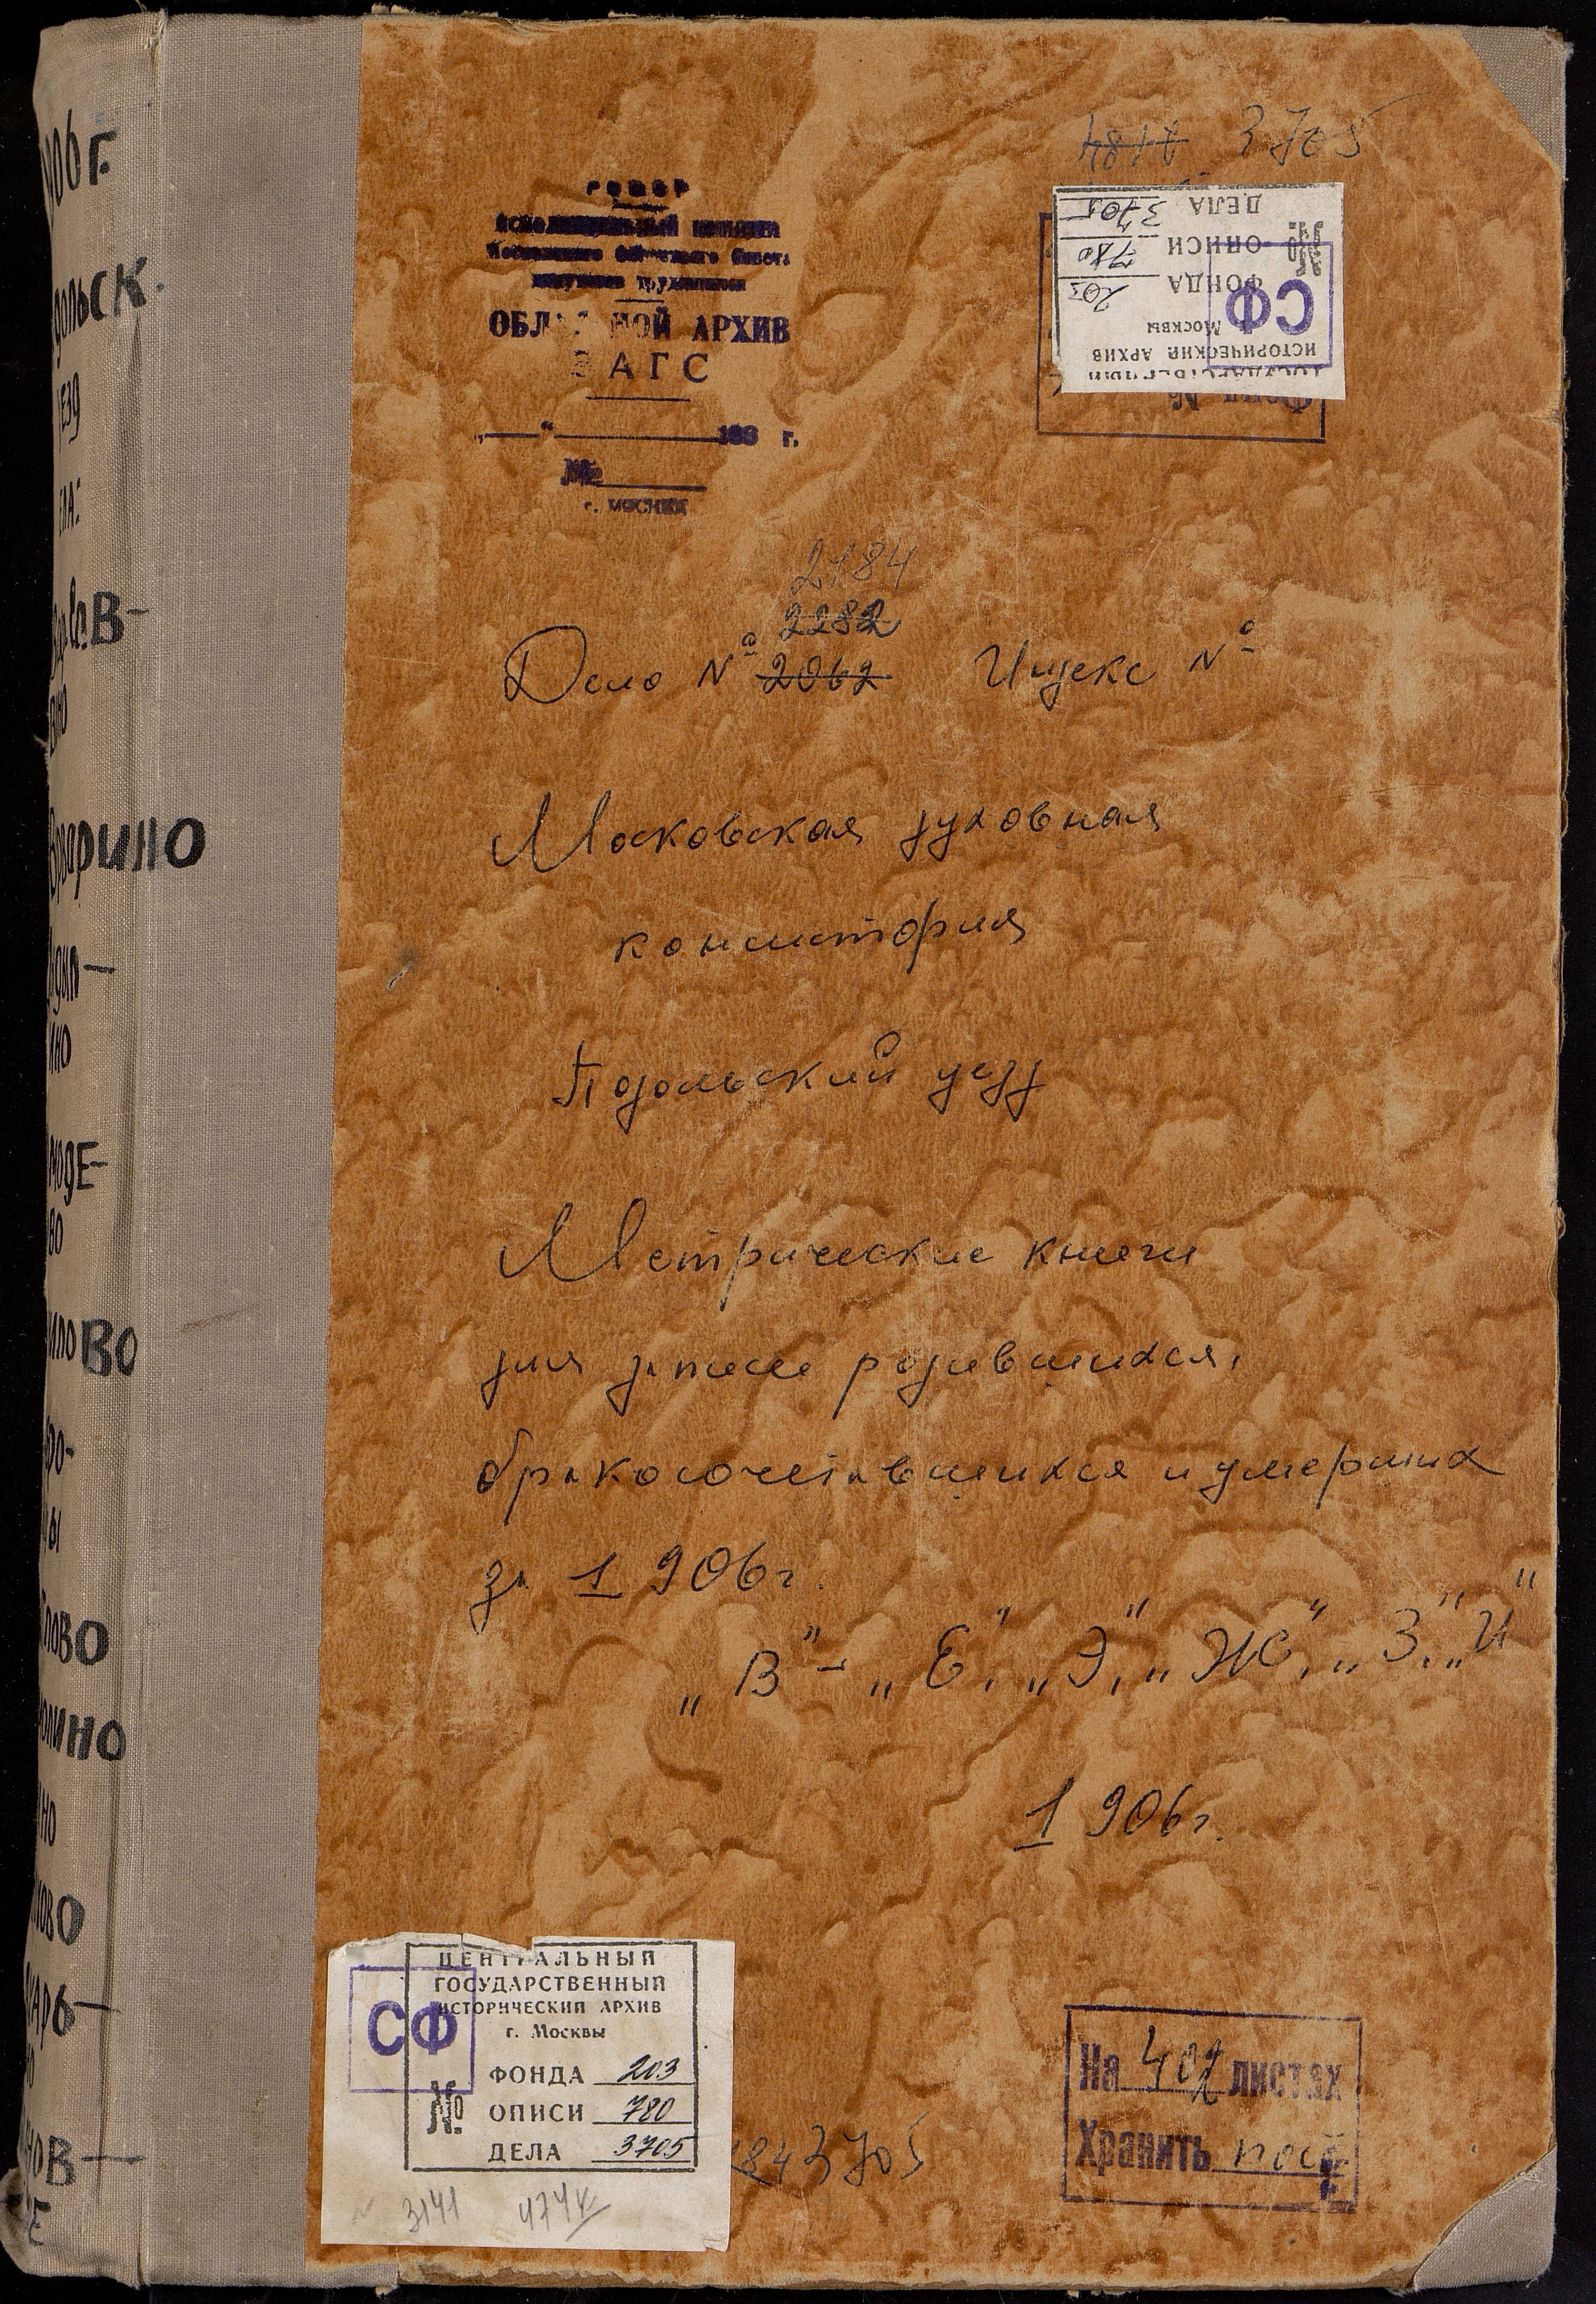 4817 3705
РСФСР
Исполнительный комитет
Московского Областного Совета
депутатов трудящихся
ОБЛАСТНОЙ АРХИВ
ЗАГС
„ “ 193 г.
№
г. МОСКВА
ИСТОРИЧЕСКИЙ АРХИВ
Москвы
СФ
№
ФОНДА 203
ОПИСИ 780
ДЕЛА 3705
Фонд №
2184
2282
Дело № 2062 Индекс №
Московская духовная
консистория
Подольский уезд
Метрические книги
для записи родившихся,
бракосочетавшихся и умерших
за 1906г.
„В“ – „Е“, „Э“, „Ж“, „З“, „И“
1906г.
ЦЕНТРАЛЬНЫЙ
ГОСУДАРСТВЕННЫЙ
ИСТОРИЧЕСКИЙ АРХИВ
г. Москвы
СФ
№
ФОНДА 203
ОПИСИ 780
ДЕЛА 3705
3141
843705
На 402 листах
Хранить пост
906г.
ольск.
рино
ово